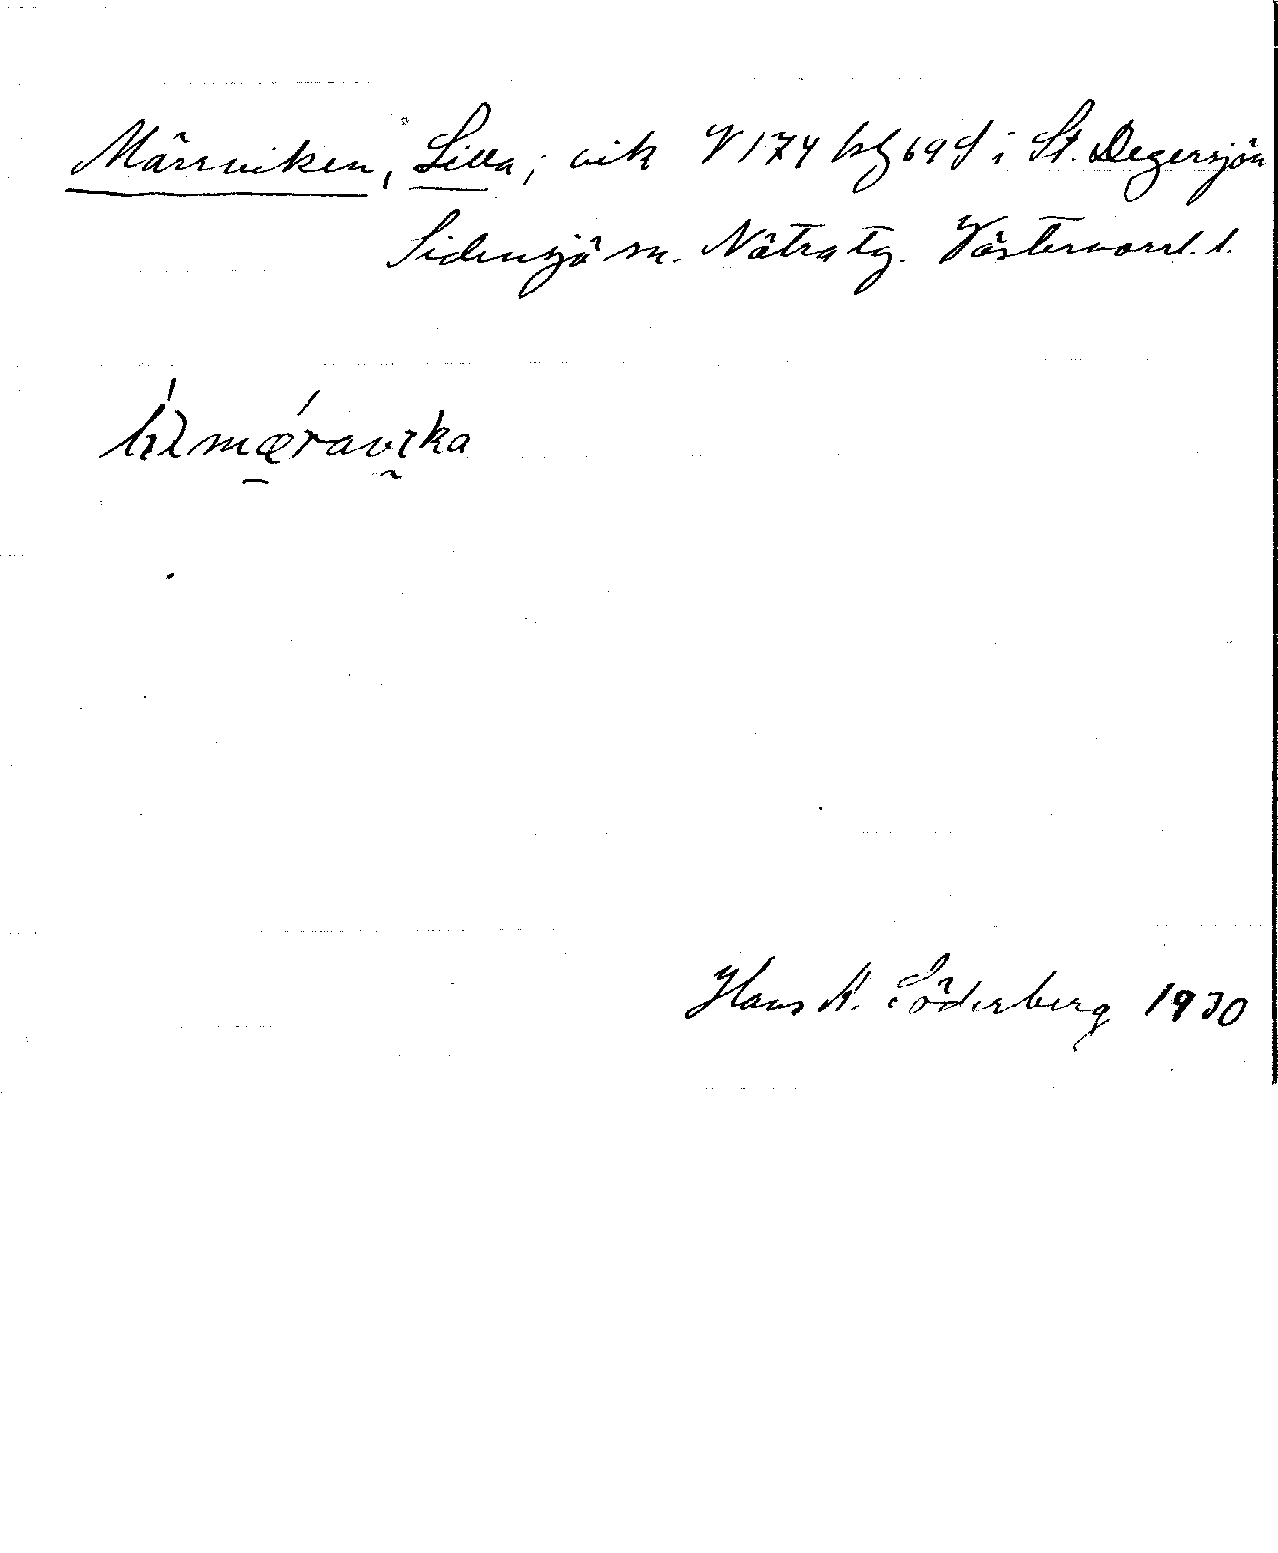 Märrviken, Lilla; vik V 174 kbl 69 S i St. Degersjön
Sidensjö sn. Nätra tg. Västernorrl. l.
lìlmǽravika
Hans A. Söderberg 1930